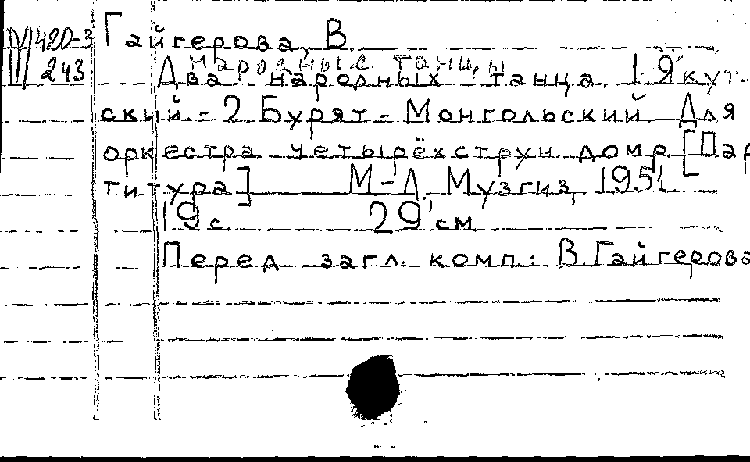 Гайгерова, В.
420-3
243
Народные танцы
Два народных танца. 1 Якут-
ский - 2 Бурят-Монгольский. Для
оркестра четырёхструн домр [Пар
титура] М-Л, Музгиз, 1951
19 с. 29 см
Перед загл. комп.: В. Гайгерова